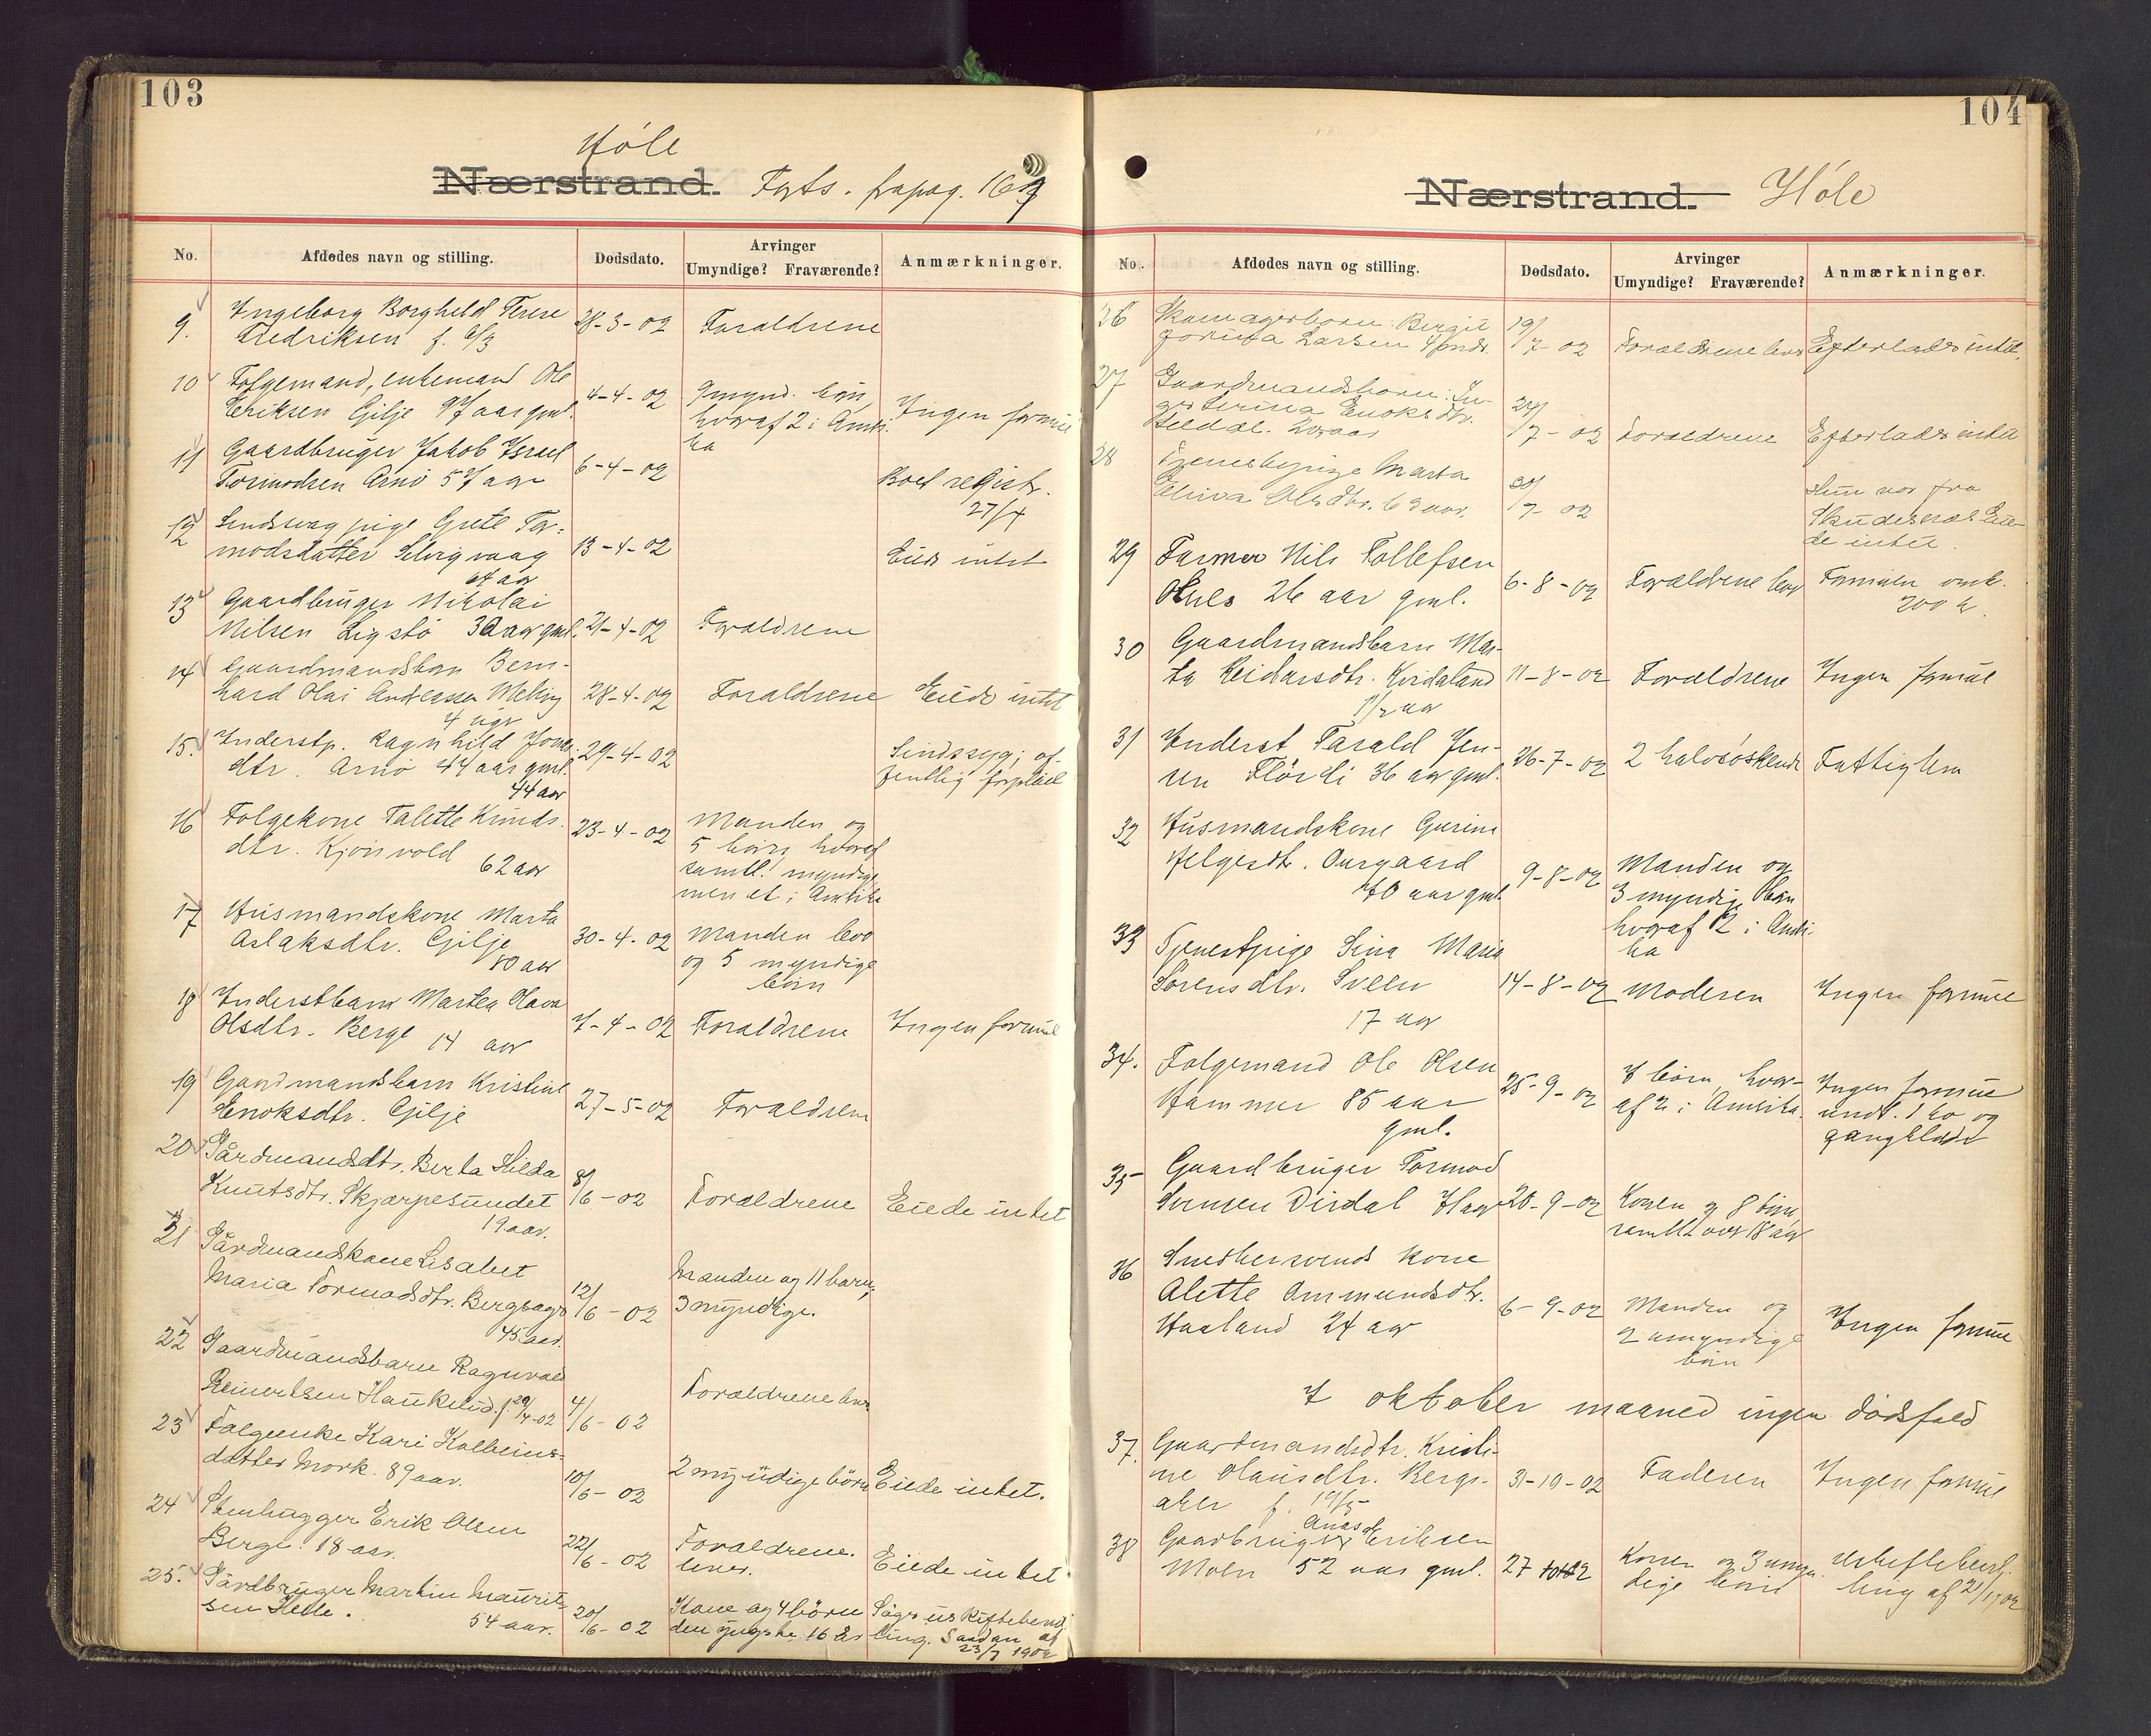 103
Høle
Nærstrand. Forts. fra pag. 169
No. Afdødes navn og stilling. Dødsdato. Arvinger Umyndige? Fraværende? Anmærkninger.
9. Ingeborg Borghild Terese
Fredriksen f. 6/3 28-3-02 Forældrene
10 Folgemand, enkemand Ole
Eriksen Gilje 97 aar gml. 4-4-02 9 mynd. børn,
hvoraf 2 i Ameri-
ka Ingen formue
11 Gaardbruger Jakob Israel
Tormodsen Arnø 57 aar 6-4-02 Boet registr.
27/4
12 Sindssvag pige Grete Tor-
modsdatter Selvigvaag
64 aar 13-4-02 Eied intet
13 Gaardbruger Nikolai
Nilsen Ligstø 30 aar gml. 21-4-02 Forældrene
14 Gaardmandsbarn Bern-
hard Olai Andreassen Meling
4 uger 28-4-02 Forældrene Eiede intet
15. Inderstp. Ragnhild Jons-
dtr. Arnø 44 aar gml.
44 aar 29-4-02 Sindssyg; of-
fentlig forpleiet
16 Folgekone Talette Knuds-
dtr. Kjønvold 62 aar 23-4-02 Manden og
5 børn hvoraf
samtl. myndige
men et i Amerika
17 Husmandskone Marta
Aslaksdtr. Gilje
80 aar 30-4-02 Manden lever
og 5 myndige
børn
18 Inderstbarn Martea Olava
Olsdtr. Berge 14 aar 7-4-02 Forældrene Ingen formue
19 Gaardmandsbarn Kristine
Enoksdtr. Gilje 27-5-02 Forældrene
20 Gårdmandsdtr. Berta Hilda
Knutsdtr. Skjærpesundet
19 aar. 8/6-02 Forældrene Eiede intet
21 Gårdmandskone Lisabet
Maria Tormodsdtr. Bergsager
45 aar. 12/6-02 Manden og 11 barn,
3 myndige.
22 Gaardmandsbarn Ragnvald
Reinertsen Haukelid. f. 29/4-02 4/6-02 Forældrene lever
23 Folgeenke Kari Kolbeins-
datter Mork. 89 aar. 10/6-02 2 myndige börn Eiede intet.
24 Stenhugger Erik Olsen
Berge. 18 aar. 22/6-02 Forældrene
lever. Eiede intet.
25. Gårdbruger Martin Maurit-
sen Helle. 54 aar. 20/6-02 Kone og 4 börn
den yngste 16 år Søgr uskiftebevil-
ling. Saadan af
23/7 1902
104
Nærstrand. Høle
No. Afdødes navn og stilling. Dødsdato. Arvinger Umyndige? Fraværende? Anmærkninger.
26 Skomagerbarn: Bergit
Jorina Larsen 4 mdr. 19/7-02 Forældrene lever Efterlader intet.
27 Gaardmandsbarn: In-
ger Serina Enoksdtr.
Seldal. 24/7-02 Forældrene Efterlader intet
28 Tjenestepige Marta
Elisva Olsdtr. 63 aar. 30/7-02 Hun var fra
Skudesnæs Eie-
de intet.
29 Farmer Nils Tollefsen
26 aar gml. 6-8-02 Forældrene lever Formuen omk.
200 kr.
30 Gaardmandsbarn Mar-
ta Reidarsdtr. Kvidaland
1/2 aar 11-8-02 Forældrene Ingen formue
31 Inderst Tarald Jen-
sen Flørli 36 aar gml. 26-7-02 2 halvsøskende Fattiglem
32 Husmandskone Gurine
Helgesdtr. Aurgaard
70 aar gml. 9-8-02 Manden og
3 myndige børn
hvoraf 2 i Ameri-
ka
33 Tjenestpige Sina Maria
Sørensdtr. Sveen
17 aar 14-8-02 Moderen Ingen formue
34. Folgemand Ole Olsen
Hammer 85 aar
gml. 25-9-02 7 børn, hvor-
af 2 i Amerika. Ingen formue
undt. 1 ko og
gangklæder
35 Gaardbruger Tormod
Svensen Dirdal 20-9-02 Konen og 8 børn
samtl. over 18 aar
36 Smedkersvends kone
Alette Ommundsdtr.
Haaland 24 aar 6-9-02 Manden og
2 umyndige
børn Ingen formue
I oktober maaned ingen dødsfald
37. Gaardmandsdtr. Kristi-
ne Olausdtr. Bergs-
aker f. 19/5 31-10-02 Faderen Ingen formue
38 Gaardbruger Aanas Eriksen
Moln 52 aar gml. 27 Konen og 3 umyn-
dige børn Uskiftebevil-
ling af 21/1 02